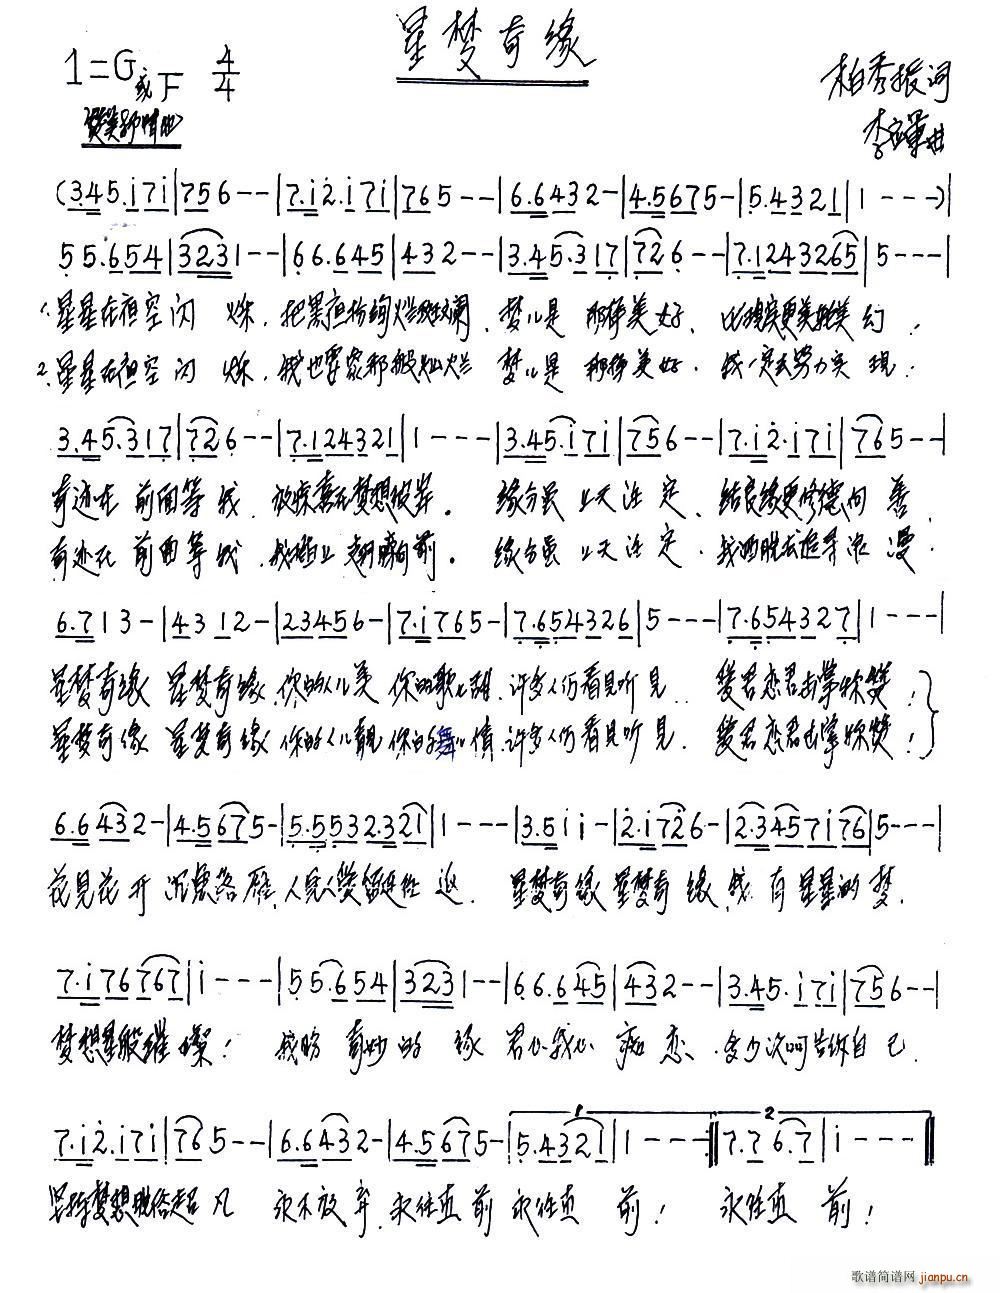 星梦奇缘
1=G或F 4/4
柏秀振词
李 曲
(3.45.i7i|756--|7.i2.i7i|765---|6.6432-|4.5675-|5.4321|1---)|
55.654|3231--|66.645|432--|3.45.317|726--|7.1243265|5---|
1.星星在夜空闪 烁，把黑夜 绚烂斑斓，梦儿是 那样美好，比现实更美 美幻！
2.星星在夜空闪 烁，我也要象那般灿烂 梦儿是 那样美好，我一定去努力实 现！
3.45.317|726--|7.124321|1---|3.45.i7i|756--|7.i2.i7i|765--|
奇迹在 前面等 我，放 在梦想彼岸。 缘分虽 上天注 定，结良缘更修德向 善，
奇迹在 前面等 我，我 上 向前。 缘分虽 上天注 定，我 洒脱去追寻浪 漫，
6.713-|4312-|23456-|7.i765-|7.654326|5---|7.654327|1---|
星梦奇缘 星梦奇缘，你的人儿美 你的歌儿甜，许多人们看见听见 爱君恋君 掌你赞！
星梦奇缘 星梦奇缘 你的人儿靓 你的舞儿倩，许多人们看见听见，爱君恋君 掌你赞！
6.6432-|4.5675-|5.5532.321|1---|3.51i-|2.i726-|2.3457i76|5---|
花见花 开 沉鱼落雁，人见人爱留连忘 返 星梦奇缘 星梦奇 缘，我 有 星星的 梦，
7.i76767|i---|55.654|3231--|66.645|432--|3.45.i7i|756--|
梦想星般璀 璨！ 我盼 奇妙的 缘 君心我心 痴 恋，多少次呵告诉自 己，
7.i2.i7i|765--|6.6432-|4.5675-|5.4321|1---:||7.76.7|i---||
坚持梦想脱俗超 凡 永不放弃，永往直 前 永往直 前！ 永往直 前！
歌谱简谱网 jianpu.cn